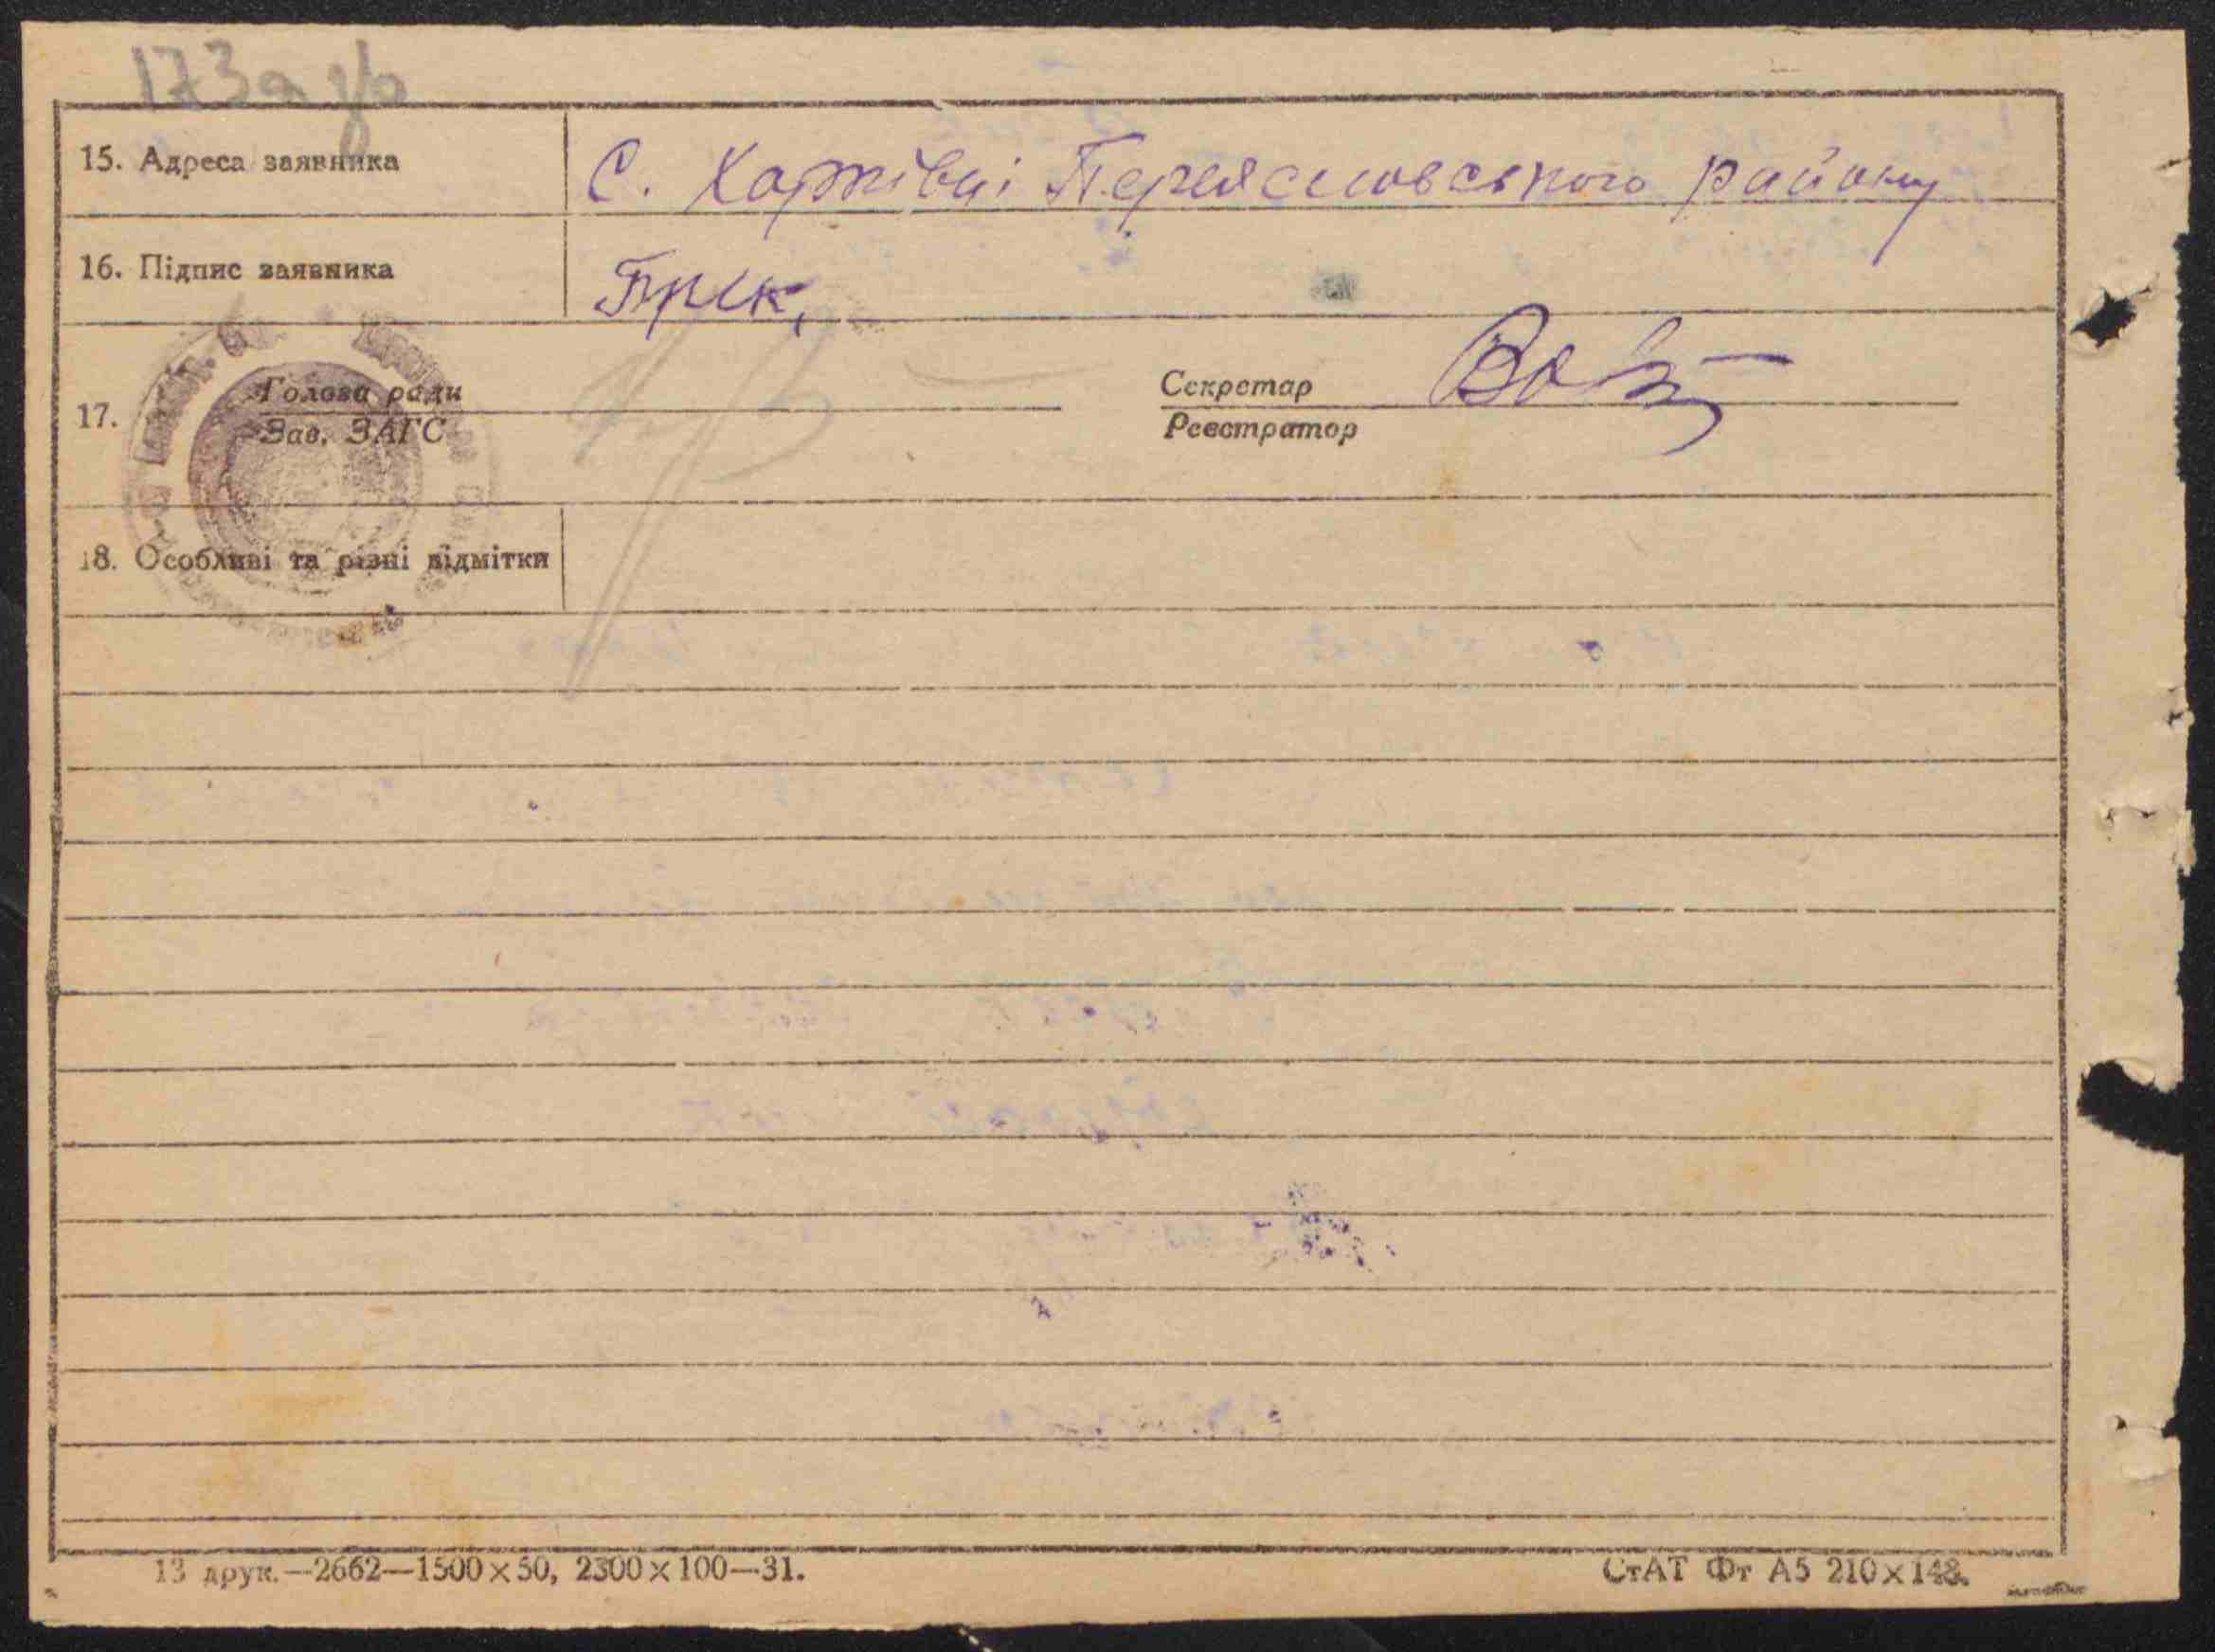 173а зв
15. Адреса заявника
С. Харківці Переяславського району
16. Підпис заявника
17.
Голова ради
Зав. ЗАГС
Секретар
Реєстратор
18. Особливі та різні відмітки
13 друк.—2662—1500×50, 2300×100—31.
СтАТ Фт А5 210×148.